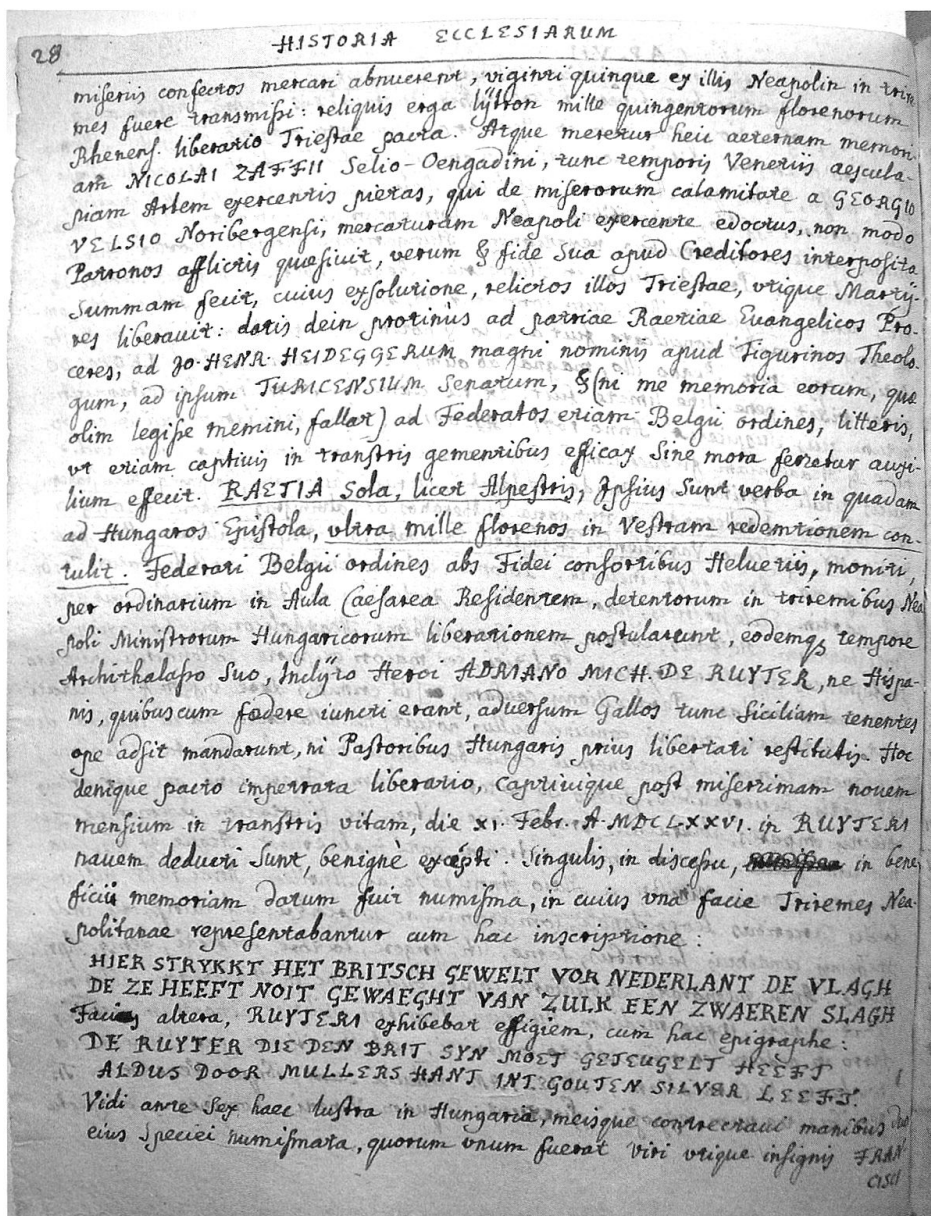 28 HISTORIA ECCLESIARUM
miseriis confectos mercari abnuerent, viginti quinque ex illis Neapolin in trire
mes fuere transmissi: reliquis erga lÿtron mille quingentorum florenorum
Rhenens. liberatio Triestae pacta. Atque meretur heic aeternam memori
am NICOLAI ZAFFII Selio-Oengadini, tunc temporis Venetiis aescula-
piam Artem exercentis pietas, qui de miserorum calamitate a GEORGIO
VELSIO Noribergensi, mercaturam Neapoli exercente edoctus, non modo
Patronos afflictis quaesivit, verum & fide sua apud Creditores interposita
Summam fecit, cuius exsolutione, relictos illos Triestae, utique Martÿ-
res liberauit: datis dein protinùs ad patriae Raetiae Evangelicos Pro-
ceres, ad JO. HENR. HEIDEGGERUM magni nominis apud Tigurinos Theolo
gum, ad ipsum TURICENSIUM Senatum, & (ni me memoria eorum, quae
olim legisse memini, fallat) ad Federatos etiam Belgii ordines, litteris,
vt etiam captivis in transtris gementibus efficax sine mora ferretur auxi-
lium effecit. RAETIA Sola, licet Alpestris, Ipsius Sunt verba in quadam
ad Hungaros Epistola, vltra mille florenos in Vestram redemtionem con-
tulit. Federati Belgii ordines abs Fidei consortibus Helvetiis, moniti,
per ordinarium in Aula Caesarea Residentem, detentorum in triremibus Nea
poli Ministrorum Hungaricorum liberationem postularunt, eodemq; tempore
Archithalasso Suo, Inclÿto Heroi ADRIANO MICH. DE RUYTER, ne Hispa-
nis, quibuscum foedere iuncti erant, adversum Gallos tunc Siciliam tenentes
ope adsit mandarunt, ni Pastoribus Hungaris prius libertati restitutis. Hoc
denique pacto impetrata liberatio, captivique post miserrimam novem
mensium in transtris vitam, die XI. Febr. A. MDCLXXVI. in RUYTERI
nauem deducti Sunt, benignè excepti. Singulis, in discessu, in bene
ficii memoriam datum fuit numisma, in cuius vna facie Triremes Nea-
politanae repraesentabantur cum hac inscriptione:
HIER STRYKKT HET BRITSCH GEWELT VOR NEDERLANT DE VLAGH
DE ZE HEEFT NOIT GEWAEGHT VAN ZULK EEN ZWAEREN SLAGH
Facies altera, RUYTERI exhibebat effigiem, cum hac epigraphe:
DE RUYTER DIE DEN BRIT SYN MOET GETEUGELT HEEFT
ALDUS DOOR MULLERS HANT INT GOUTEN SILVER LEEFT.
Vidi ante Sex haec lustra in Hungaria, meisque contrectaui manibus duo
eius Speciei numismata, quorum vnum fuerat viri vtique insignis FRAN
CISCI